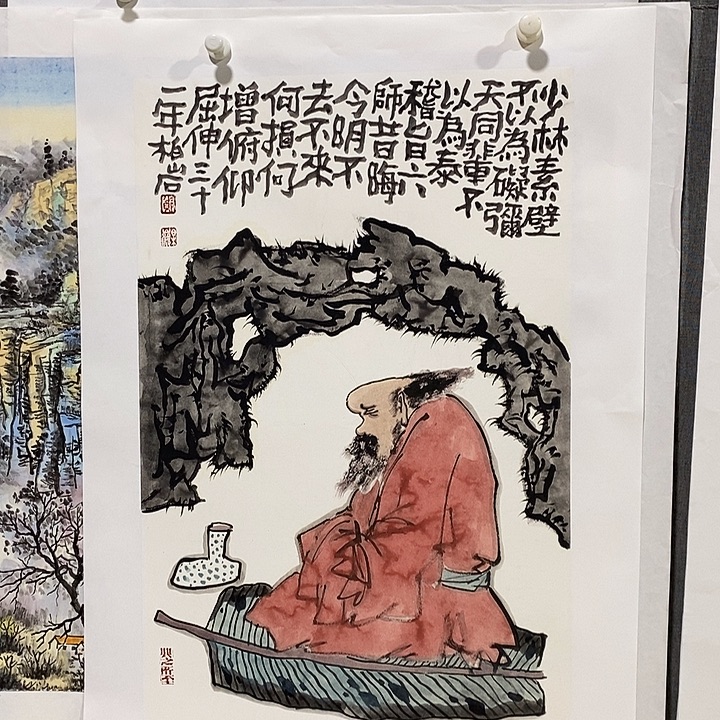 少林素壁
不以為礙彌
天同輩不
以為泰
稽首六
師昔晦
今明不
去不來
何損何
增俯仰
屈伸三十
二年柏岩